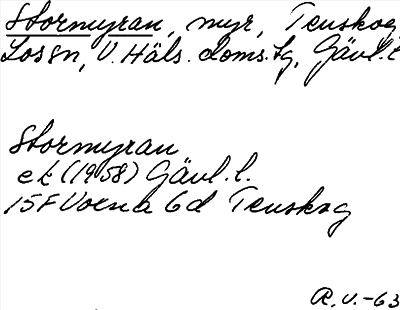 Stormyran, myr, Tenskog,
sn, V. Häls. doms.tg, Gävl. l
Stormyran
ek (1958) Gävl. l.
15F Voxna 6d Tenskog
R.V.-63